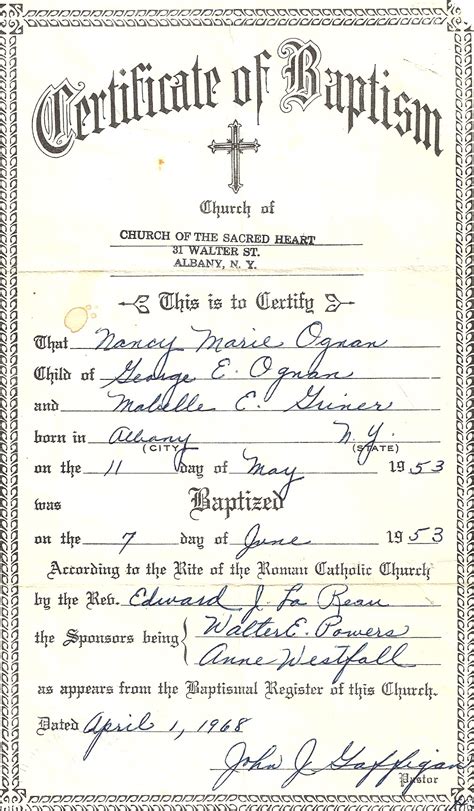 Certificate of Baptism
Church of
CHURCH OF THE SACRED HEART
31 WALTER ST.
ALBANY, N. Y.
This is to Certify
That Nancy Marie Ognan
Child of George E. Ognan
and Mabelle E. Griner
born in Albany N.Y.
(CITY) (STATE)
on the 11 day of May 1953
was Baptized
on the 7 day of June 1953
According to the Rite of the Roman Catholic Church
by the Rev. Edward J. La Reau
the Sponsors being Walter E. Powers
Anne Westfall
as appears from the Baptismal Register of this Church.
Dated April 1, 1968
John J. Gaffigan
Pastor